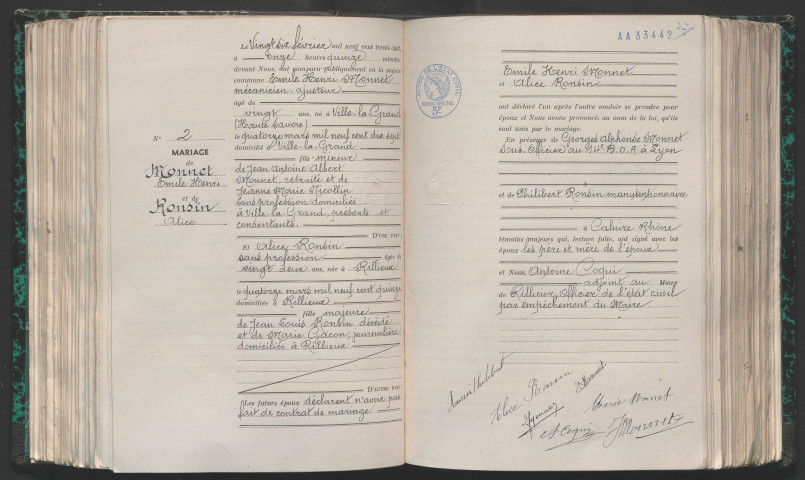 N° 2
MARIAGE
de
Monnet
Emile Henri
et de
Ronsin
Alice
Le Vingt six février mil neuf cent trente-huit,
à onze heures quinze minutes,
devant Nous, ont comparu publiquement en la maison
commune Emile Henri Monnet
mécanicien-ajusteur
âgé de
vingt ans, né à Ville-la-Grand
(Haute Savoie)
le quatorze mars mil neuf cent dix sept
domicilié à Ville-la-Grand
fils mineur
de Jean Antoine Albert
Monnet, retraité et de
Jeanne Marie Nicollin
sans profession domiciliés
à Ville-la-Grand, présents et
consentants.
D'UNE PART
Et Alice Ronsin
sans profession âgée de
vingt deux ans, née à Rillieux
le quatorze mars mil neuf cent quinze
domiciliée à Rillieux
fille majeure
de Jean Louis Ronsin décédé
et de Marie Gacon, journalière
domiciliée à Rillieux
D'AUTRE PART
Les futurs époux déclarent n'avoir pas
fait de contrat de mariage
AA 33442
5F
Emile Henri Monnet
et Alice Ronsin
ont déclaré l'un après l'autre vouloir se prendre pour
époux et Nous avons prononcé, au nom de la loi, qu'ils
sont unis par le mariage.
En présence de Georges Alphonse Monnet
Sous-Officier au 14e B.O.A à Lyon
et de Philibert Ronsin manutentionnaire
à Caluire Rhône
témoins majeurs qui, lecture faite, ont signé avec les
époux les père et mère de l'époux
et Nous, Antoine Coqui
adjoint au Maire
de Rillieux, Officier de l'état civil
par empêchement du Maire.
Ronsin Philibert
Alice Ronsin
EMonnet
Marie Monnet
A. Coqui
JMonnet